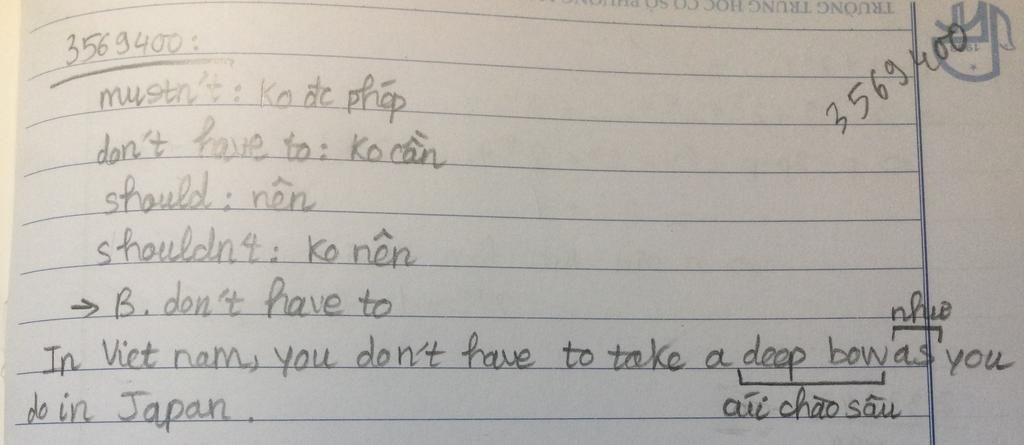 TRƯỜNG TRUNG HỌC CƠ SỞ
3569400:
3569400
mustn't: Ko đc phép
don't have to: Ko cần
should: nên
shouldn't: Ko nên
→ B. don't have to
như
In Viet nam, you don't have to take a deep bow as you
do in Japan.
cúi chào sâu